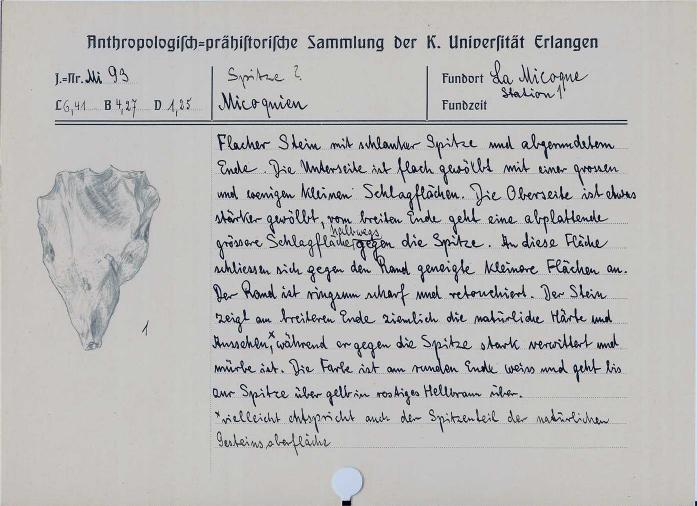 Anthropologisch=prähistorische Sammlung der K. Universität Erlangen
J.=Nr. Mi 93
L 6,41 B 4,27 D 1,25
Spitze ?
Micoquien
Fundort La Micoque
Station 1
Fundzeit
Flacher Stein mit schlanker Spitze und abgerundetem
Ende. Die Unterseite ist flach gewölbt mit einer grossen
und wenigen kleinen Schlagflächen. Die Oberseite ist etwas
stärker gewölbt, vom breiten Ende geht eine abplattende
halbwegs
grössere Schlagfläche gegen die Spitze. An diese Fläche
schliessen sich gegen den Rand geneigte kleinere Flächen an.
Der Rand ist ringsum scharf und retouchiert. Der Stein
zeigt am breiteren Ende ziemlich die natürliche Härte und
Aussehen,x während er gegen die Spitze stark verwittert und
mürbe ist. Die Farbe ist am runden Ende weiss und geht bis
zur Spitze über gelb in rostiges Hellbraun über.
x vielleicht entspricht auch der Spitzenteil der natürlichen
Gesteinsoberfläche
1